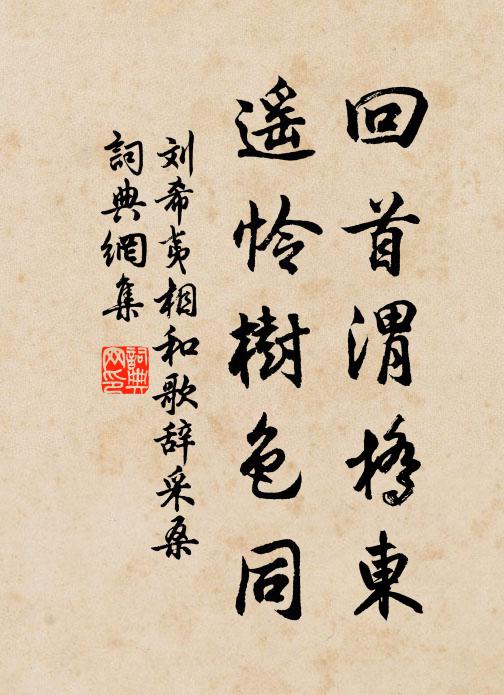 回首渭橋東
遥怜樹色同
刘希夷相和歌辞采桑
詞典網集
詞典网印